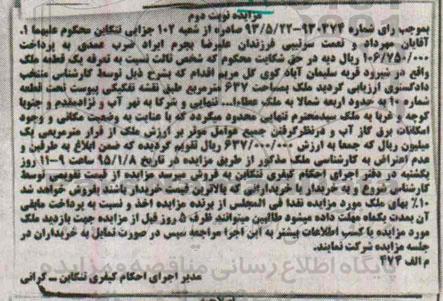 مزایده نوبت دوم
بموجب رای شماره ۹۲۰۳۷۴-۹۳/۵/۲۲ صادره از شعبه ۱۰۲ جزایی تنکابن محکوم علیهما ۱.
آقایان مهرداد و نعمت سرتیپی فرزندان علیرضا بجرم ایراد ضرب عمدی به پرداخت
۱۰۶/۷۵۰/۰۰۰ ریال دیه در حق شکایت محکوم که شخص ثالث نسبت به تعرفه یک قطعه ملک
واقع در شیرود قریه سلیمان آباد کوی گل مریم اقدام که بشرح ذیل توسط کارشناس منتخب
دادگستری ارزیابی گردید ملک بمساحت ۶۳۷ مترمربع طبق نقشه تفکیکی پیوست تحت قطعه
شماره ۱۰ به حدود اربعه شمالا به ملک عطاء... تنهایی و شرکا به نهر آب و نزادمقدم و جنوبا
کوچه و غربا به ملک سیدمحترم تنهایی محدود میگردد که با عنایت به وضعیت مکانی و وجود
امکانات برق گاز آب و درنظرگرفتن جمیع عوامل موثر بر ارزش ملک از قرار مترمربعی یک
میلیون ریال که جمعا به ارزش ۶۳۷/۰۰۰/۰۰۰ ریال تقویم گردیده که ضمن ابلاغ به طرفین و
عدم اعتراض به کارشناسی ملک مذکور از طریق مزایده در تاریخ ۹۵/۱/۸ ساعت ۹-۱۱ روز
یکشنبه در دفتر اجرای احکام کیفری تنکابن به فروش میرسد مزایده از قیمت تقویمی توسط
کارشناس شروع و به خریدار یا خریدارانی که بالاترین قیمت خریدار باشند بفروش خواهد شد
۱۰٪ بهای ملک مورد مزایده نقدا فی المجلس از برنده مزایده اخذ و نسبت به پرداخت مابقی
آن بمدت یکماه مهلت داده میشود طالبین میتوانند ظرف ۵ روز قبل از مزایده جهت بازدید ملک
مورد مزایده یا کسب اطلاعات بیشتر به این اجرا مراجعه سپس در صورت تمایل به خریداران در
جلسه مزایده شرکت نمایند.
م الف ۴۷۴
مدیر اجرای احکام کیفری تنکابن - گرانی
پایگاه اطلاع رسانی مناقصه و مزایده